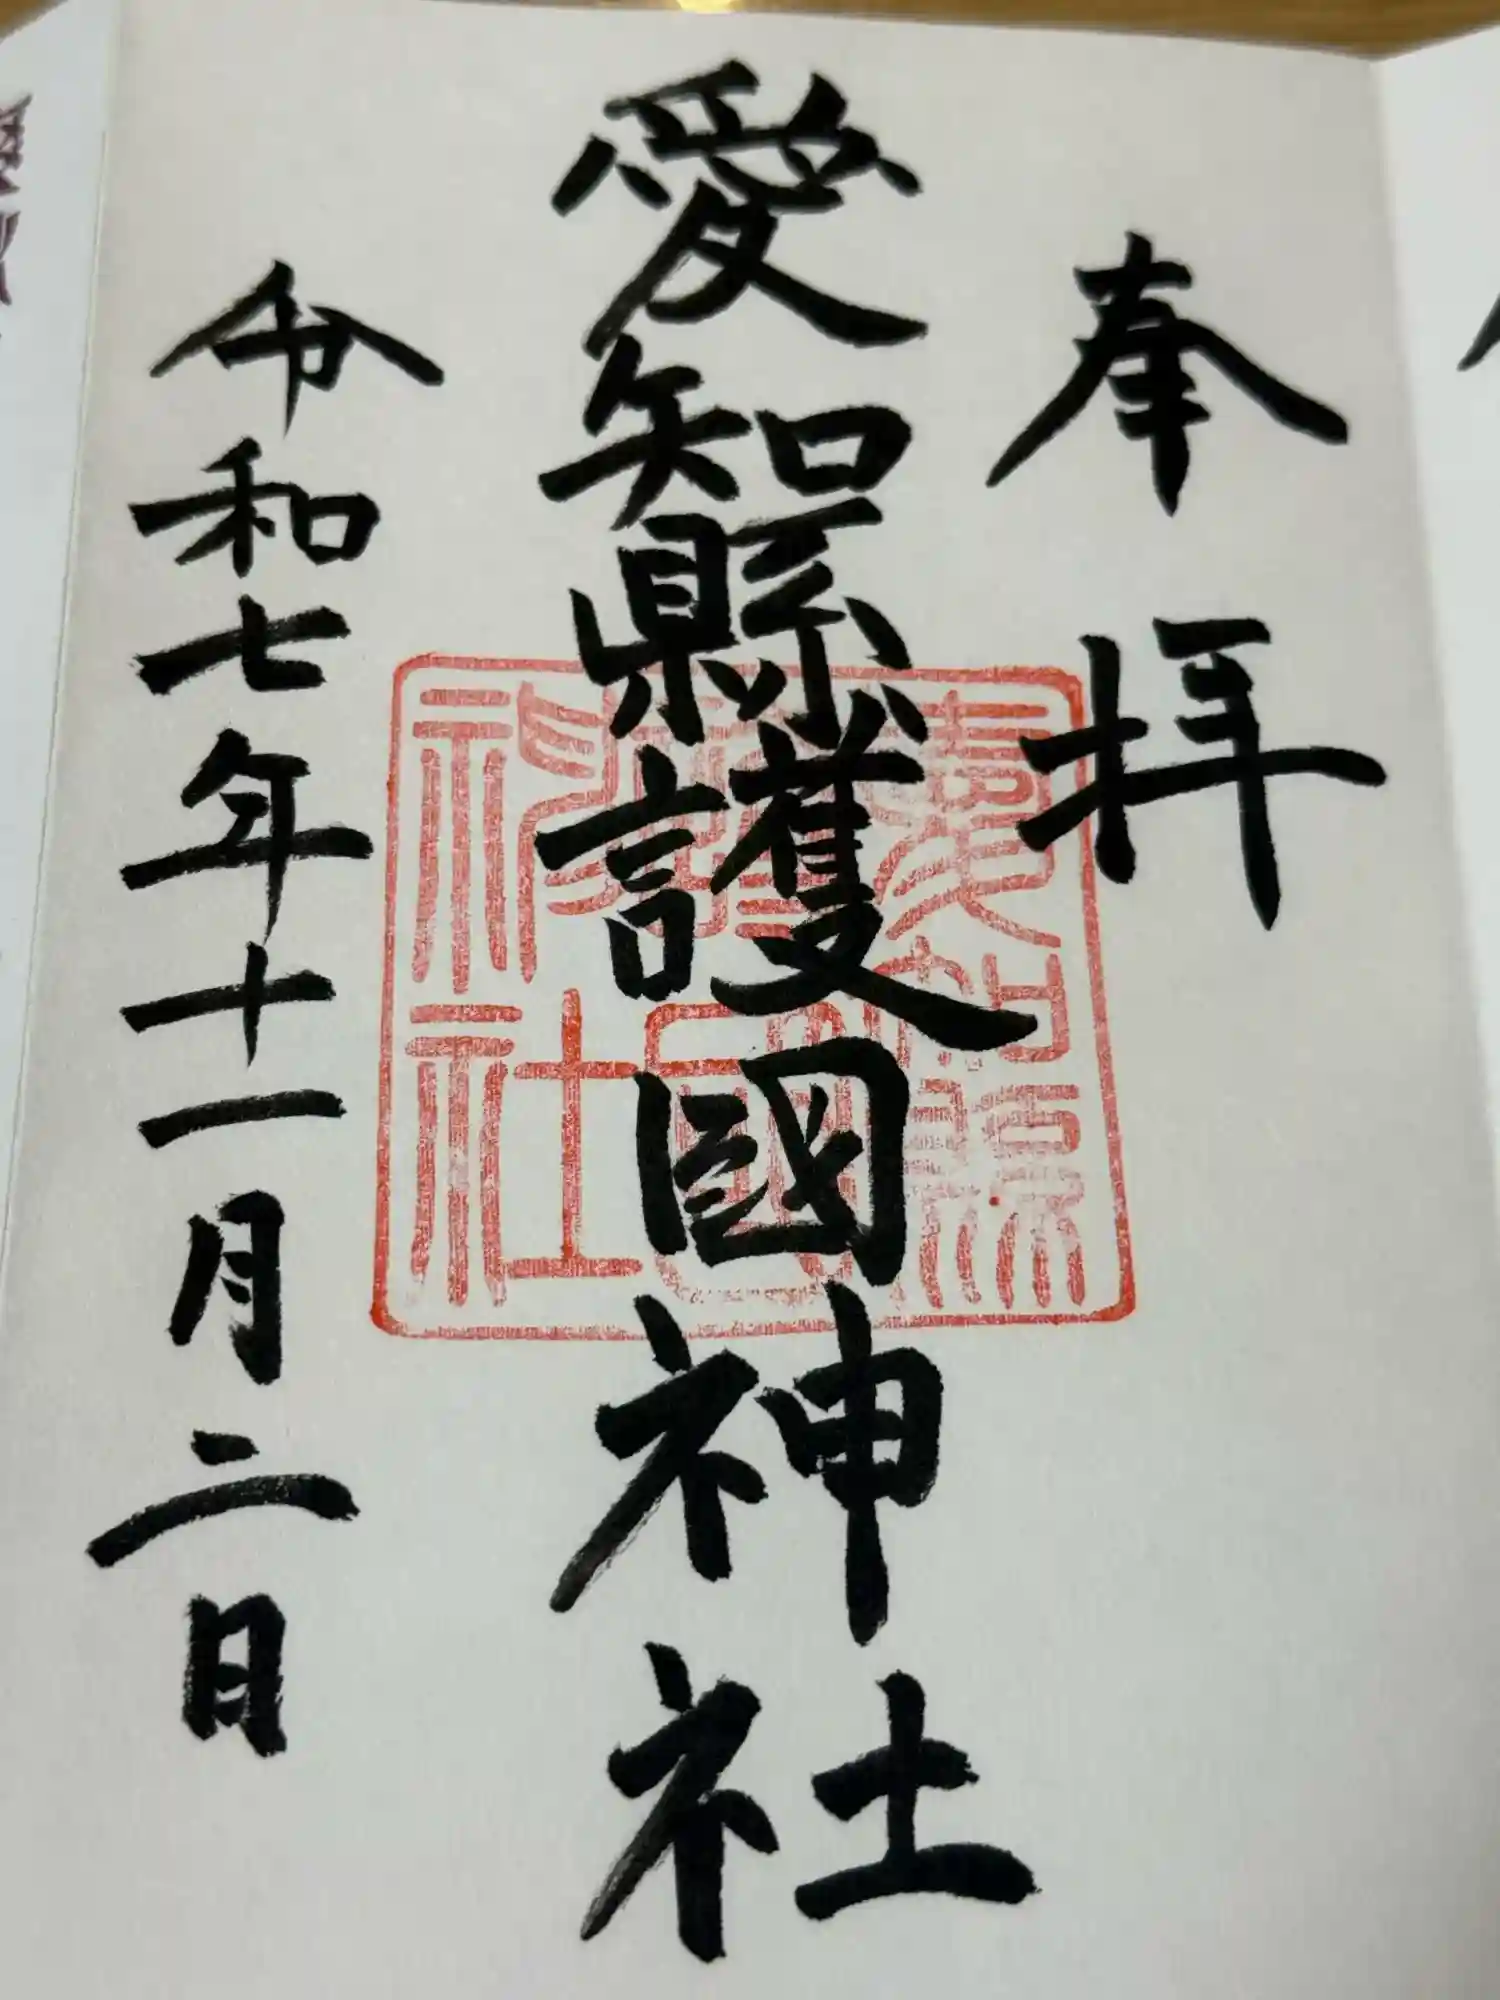 奉拝
愛知縣護國神社
愛知縣護國神社
令和七年十一月二日